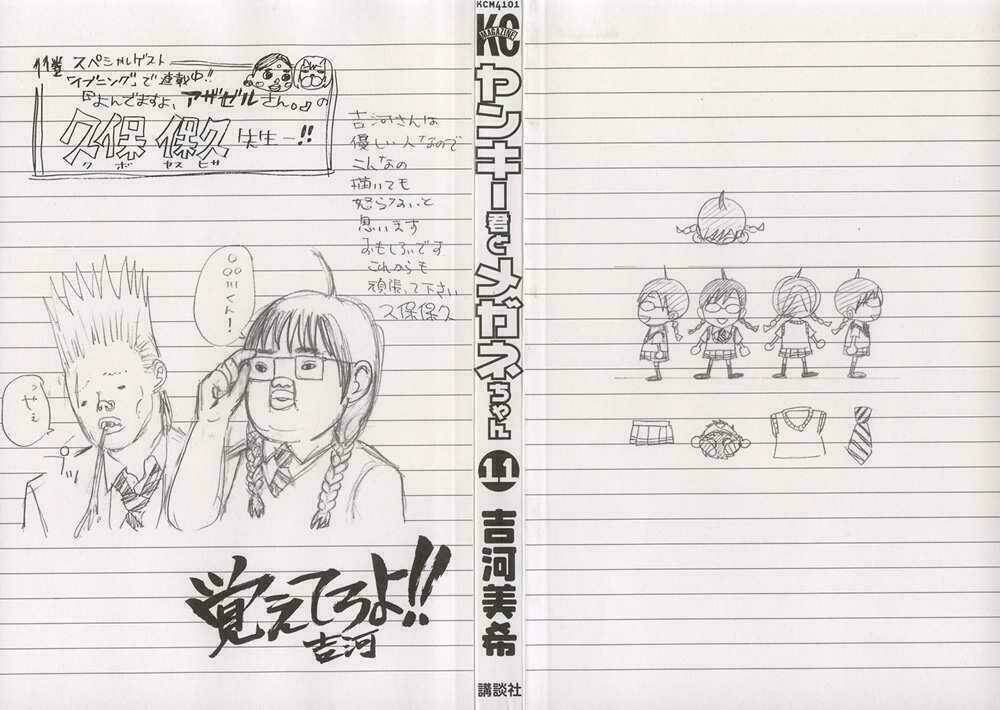 11巻 スペシャルゲスト
「イブニング」で連載中!!
『よんでますよ、アザゼルさん。』の
久保 保久 先生ー!!
クボ ヤスヒサ
吉河さんは
優しい人なので
こんなの
描いても
怒らないと
思います
おもしろいです
これからも
頑張って下さい
久保保久
○○川くん!
っぜぇ
ペッ
覚えてろよ!!
吉河
KCM4101
KC
MAGAZINE
ヤンキー君とメガネちゃん
11
吉河美希
講談社